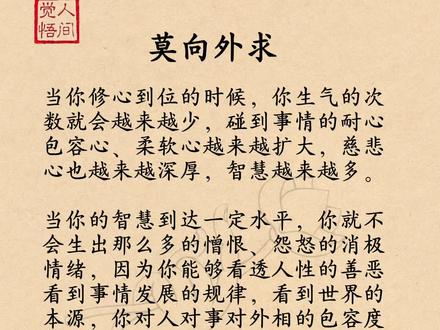 人间
觉悟
莫向外求
当你修心到位的时候，你生气的次
数就会越来越少，碰到事情的耐心
包容心、柔软心越来越扩大，慈悲
心也越来越深厚，智慧越来越多。
当你的智慧到达一定水平，你就不
会生出那么多的憎恨、怨怒的消极
情绪，因为你能够看透人性的善恶
看到事情发展的规律，看到世界的
本源，你对人对事对外相的包容度